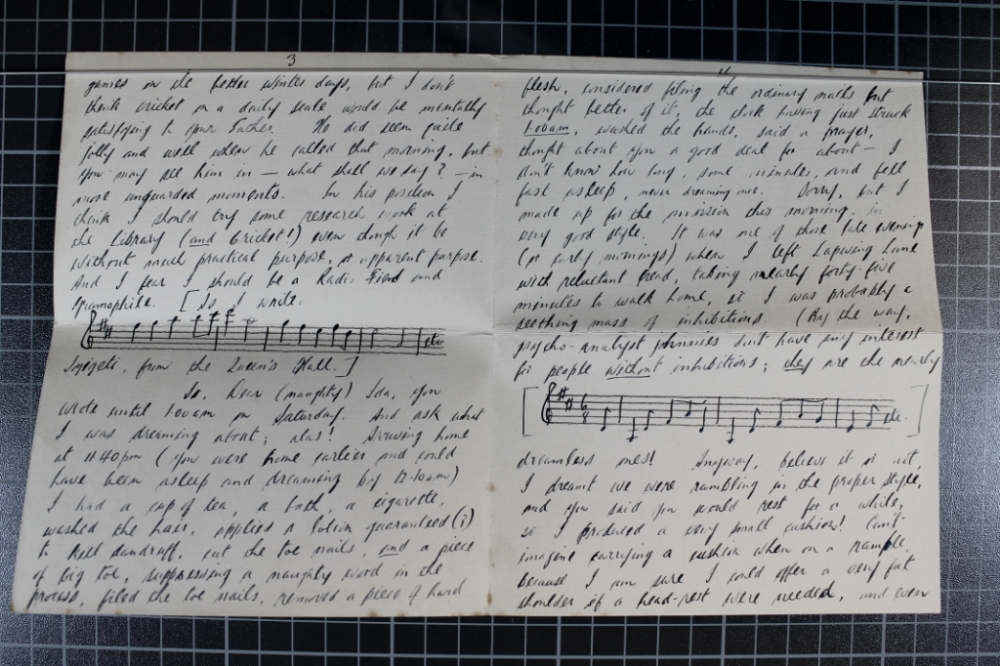 3
games on the better winter days, but I don't
think cricket on a daily scale would be mentally
satisfying to your Father. He did seem quite
jolly and well when he called that morning, but
you may see him in — what shall we say? — in
more unguarded moments. In his position I
think I should try some research work at
the Library (and Cricket!) even though it be
without much practical purpose, or apparent purpose.
And I fear I should be a Radio Fiend and
Gramophile. [As I write.
etc
Szigeti, from the Queen's Hall.]
So, Dear (naughty) Ida, you
wrote until 1.00am on Saturday. And ask what
I was dreaming about; alas! Arriving home
at 11.40pm (you were home earlier and could
have been asleep and dreaming by 12.10am)
I had a cup of tea, a bath, a cigarette,
washed the hair, applied a lotion guaranteed (?)
to kill dandruff, cut the toe nails, and a piece
of big toe, suppressing a naughty word in the
process, filed the toe nails, removed a piece of hard
4
flesh, considered filing the ordinary nails but
thought better of it, the clock having just struck
1.00am, washed the hands, said a prayer,
thought about you a good deal for about — I
don't know how long, some minutes, and fell
fast asleep, never dreaming once. Sorry, but I
made up for the omission this morning, in
very good style. It was one of those late evenings
(or early mornings) when I left Lapwing Lane
with reluctant tread, taking nearly forty-five
minutes to walk home, so I was probably a
seething mass of inhibitions. (By the way,
psycho-analyst johnnies don't have any interest
for people without inhibitions; they are the nearly
[ 6 8 etc. ]
dreamless ones! Anyway, believe it or not,
I dreamt we were rambling in the proper style,
and you said you would rest for a while,
so I produced a very small cushion! Can't
imagine carrying a cushion when on a ramble,
because I am sure I could offer a very fat
shoulder if a head-rest were needed, and even